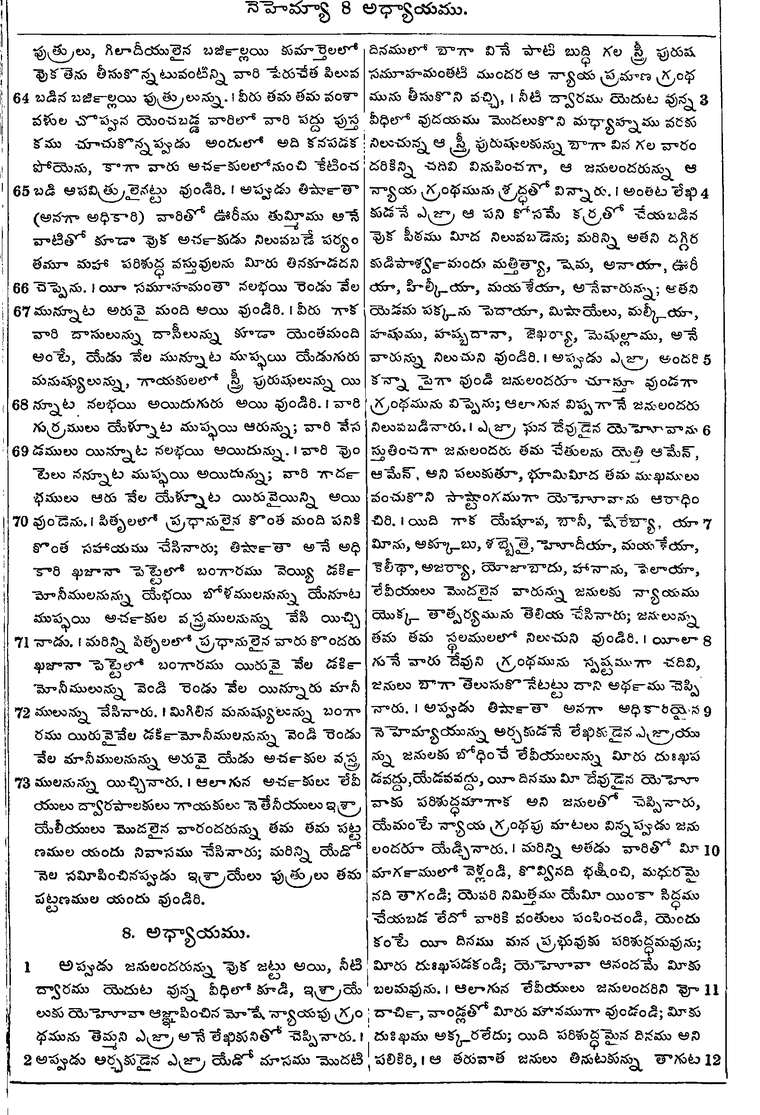 నెహెమ్యా 8 అధ్యాయము.
పుత్రులు, గిలాదీయులైన బర్జిల్లయి కుమార్తెలలో
వొకతెను తీసుకొన్నటువంటిన్ని వారి పేరుచేత పిలువ
64 బడిన బర్జిల్లయి పుత్రులున్ను. । వీరు తమ తమ వంశా
వళుల చొప్పున యెంచబడ్డ వారిలో వారి పద్దు పుస్త
కము చూచుకొన్నప్పుడు అందులో అది కనపడక
పోయెను, కాగా వారు అర్చకులలోనుంచి కేటించ
65 బడి అపవిత్రులైనట్టు వుండిరి. । అప్పుడు తిర్షాతా
(అనగా అధికారి) వారితో ఊరీము తుమ్మీము అనే
వాటితో కూడా వొక అర్చకుడు నిలువబడే పర్యం
తమూ మహా పరిశుద్ధ వస్తువులను మీరు తినకూడదని
66 చెప్పెను. । యీ సమూహమంతా నలభయి రెండు వేల
67 మున్నూట అరువై మంది అయి వుండిరి. । వీరు గాక
వారి దాసులున్ను దాసీలున్ను కూడా యెంతమంది
అంటే, యేడు వేల మున్నూట ముప్ఫయి యేడుగురు
మనుష్యులున్ను, గాయకులలో స్త్రీ పురుషులున్ను యి
68 న్నూట నలభయి అయిదుగురు అయి వుండిరి. । వారి
గుర్రములు యేళ్నూట ముప్ఫయి ఆరున్ను; వారి వేస
69 డములు యిన్నూట నలభయి అయిదున్ను. । వారి వుం
టెలు నన్నూట ముప్ఫయి అయిదున్ను; వారి గార్ద
భములు ఆరు వేల యేళ్నూట యిరువైయిన్ని అయి
70 వుండెను. । పితృలలో ప్రధానులైన కొంత మంది పనికి
కొంత సహాయము చేసినారు; తిర్షాతా అనే అధి
కారి ఖజానా పెట్టెలో బంగారము వెయ్యి డర్కి
మోనీములనున్ను యేభయి బోళములనున్ను యేనూట
ముప్ఫయి అర్చకుల వస్త్రములనున్ను వేసి యిచ్చి
71 నాడు. । మరిన్ని పితృలలో ప్రధానులైన వారు కొందరు
ఖజానా పెట్టెలో బంగారము యిరువై వేల డర్కి
మోనీములున్ను వెండి రెండు వేల యిన్నూరు మానీ
72 ములున్ను వేసినారు. । మిగిలిన మనుష్యులున్ను బంగా
రము యిరువైవేల డర్కిమోనీములనున్ను వెండి రెండు
వేల మానీములనున్ను అరువై యేడు అర్చకుల వస్త్ర
73 ములనున్ను యిచ్చినారు. । ఆలాగున అర్చకులు లేవీ
యులు ద్వారపాలకులు గాయకులు నెతేనీయులు ఇశ్రా
యేలీయులు మొదలైన వారందరున్ను తమ తమ పట్ట
ణముల యందు నివాసము చేసినారు; మరిన్ని యేడో
నెల సమీపించినప్పుడు ఇశ్రాయేలు పుత్రులు తమ
పట్టణముల యందు వుండిరి.
8. అధ్యాయము.
1 అప్పుడు జనులందరున్ను వొక జట్టు అయి, నీటి
ద్వారము యెదుట వున్న వీధిలో కూడి, ఇశ్రాయే
లుకు యెహోవా ఆజ్ఞాపించిన మోషే న్యాయపు గ్రం
థమును తెమ్మని ఎజ్రా అనే లేఖికునితో చెప్పినారు. ।
2 అప్పుడు అర్చకుడైన ఎజ్రా యేడో మాసము మొదటి
దినములో బాగా వినే పాటి బుద్ధి గల స్త్రీ పురుష
సమూహమంతటి ముందర ఆ న్యాయ ప్రమాణ గ్రంథ
మును తీసుకొని వచ్చి, । నీటి ద్వారము యెదుట వున్న 3
వీధిలో వుదయము మొదలుకొని మధ్యాహ్నము వరకు
నిలుచున్న ఆ స్త్రీ పురుషులకున్ను బాగా విన గల వారం
దరికిన్ని చదివి వినుపించగా, ఆ జనులందరున్ను ఆ
న్యాయ గ్రంథమును శ్రద్ధతో విన్నారు. । అంతట లేఖి 4
కుడనే ఎజ్రా ఆ పని కోసమే కర్రతో చేయబడిన
వొక పీఠము మీద నిలువబడెను; మరిన్ని అతని దగ్గిర
కుడిపార్శ్వమందు మత్తిత్యా, షెమ, అనాయా, ఊరీ
యా, హిల్కీయా, మయశేయా, అనేవారున్ను; అతని
యెడమ పక్కను పెదాయా, మిషాయేలు, మల్కీయా,
హషుము, హష్బదానా, జెఖర్యా, మెషుల్లాము, అనే
వారున్ను నిలుచుని వుండిరి. । అప్పుడు ఎజ్రా అందరి 5
కన్నా పైగా వుండి జనులందరూ చూస్తూ వుండగా
గ్రంథమును విప్పెను; ఆలాగున విప్పగానే జనులందరు
నిలువబడినారు. । ఎజ్రా ఘన దేవుడైన యెహోవాను 6
స్తుతించగా జనులందరు తమ చేతులను యెత్తి ఆమేన్,
ఆమేన్, అని పలుకుతూ, భూమిమీద తమ ముఖములు
వంచుకొని సాష్టాంగముగా యెహోవాను ఆరాధిం
చిరి. । యిది గాక యేషూవ, బానీ, షేరేబ్యా, యా 7
మీను, అక్కూబు, శబ్బెతై, హోదీయా, మయశేయా,
కెలీథా, అజర్యా, యోజాబాదు, హానాను, పెలాయా,
లేవీయులు మొదలైన వారున్ను జనులకు న్యాయము
యొక్క తాత్పర్యమును తెలియ చేసినారు; జనులున్ను
తమ తమ స్థలములలో నిలుచుని వుండిరి. । యీలా 8
గునే వారు దేవుని గ్రంథమును స్పష్టముగా చదివి,
జనులు బాగా తెలుసుకొనేటట్టు దాని అర్థము చెప్పి
నారు. । అప్పుడు తిర్షాతా అనగా అధికారియైన 9
నెహెమ్యాయున్ను అర్చకుడనే లేఖికుడైన ఎజ్రాయు
న్ను జనులకు బోధించే లేవీయులున్ను మీరు దుఃఖప
డవద్దు, యేడవవద్దు, యీ దినము మీ దేవుడైన యెహో
వాకు పరిశుద్ధమాగాక అని జనులతో చెప్పినారు,
యేమంటే న్యాయ గ్రంథపు మాటలు విన్నప్పుడు జను
లందరూ యేడ్చినారు. । మరిన్ని అతడు వారితో మీ 10
మార్గములో వెళ్లండి, కొవ్వినది భక్షించి, మధురమై
నది తాగండి; యెవరి నిమిత్తము యేమీ యింకా సిద్ధము
చేయబడ లేదో వారికి వంతులు పంపించండి, యెందు
కంటే యీ దినము మన ప్రభువుకు పరిశుద్ధమవును;
మీరు దుఃఖపడకండి; యెహోవా ఆనందమే మీకు
బలమవును. । ఆలాగున లేవీయులు జనులందరిని వూ 11
దార్చి, వాండ్లతో మీరు మౌనముగా వుండండి; మీకు
దుఃఖము అక్కరలేదు; యిది పరిశుద్ధమైన దినము అని
పలికిరి, । ఆ తరువాత జనులు తినుటకున్ను తాగుట 12